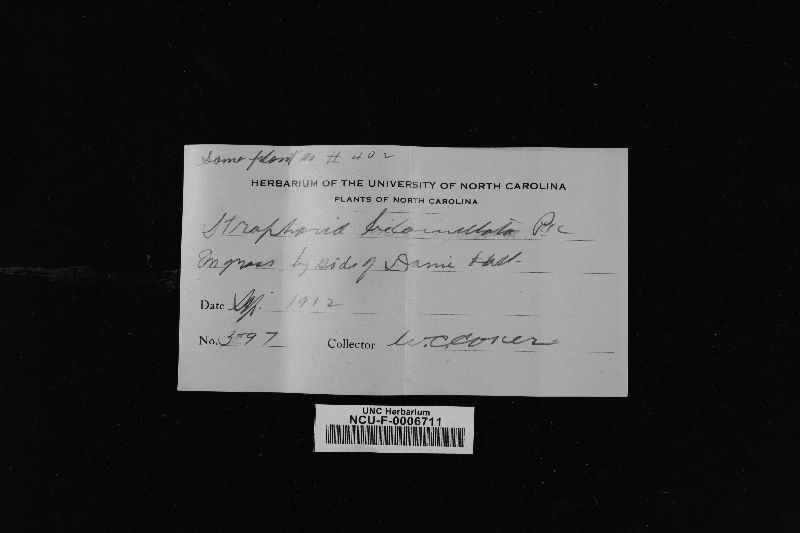 Same plant as # 402
HERBARIUM OF THE UNIVERSITY OF NORTH CAROLINA
PLANTS OF NORTH CAROLINA
Stropharia bilamellata Pk
In grass by side of Davie Hall
Date Sep. 1912
No. 597 Collector W.C. Coker
UNC Herbarium
NCU-F-0006711